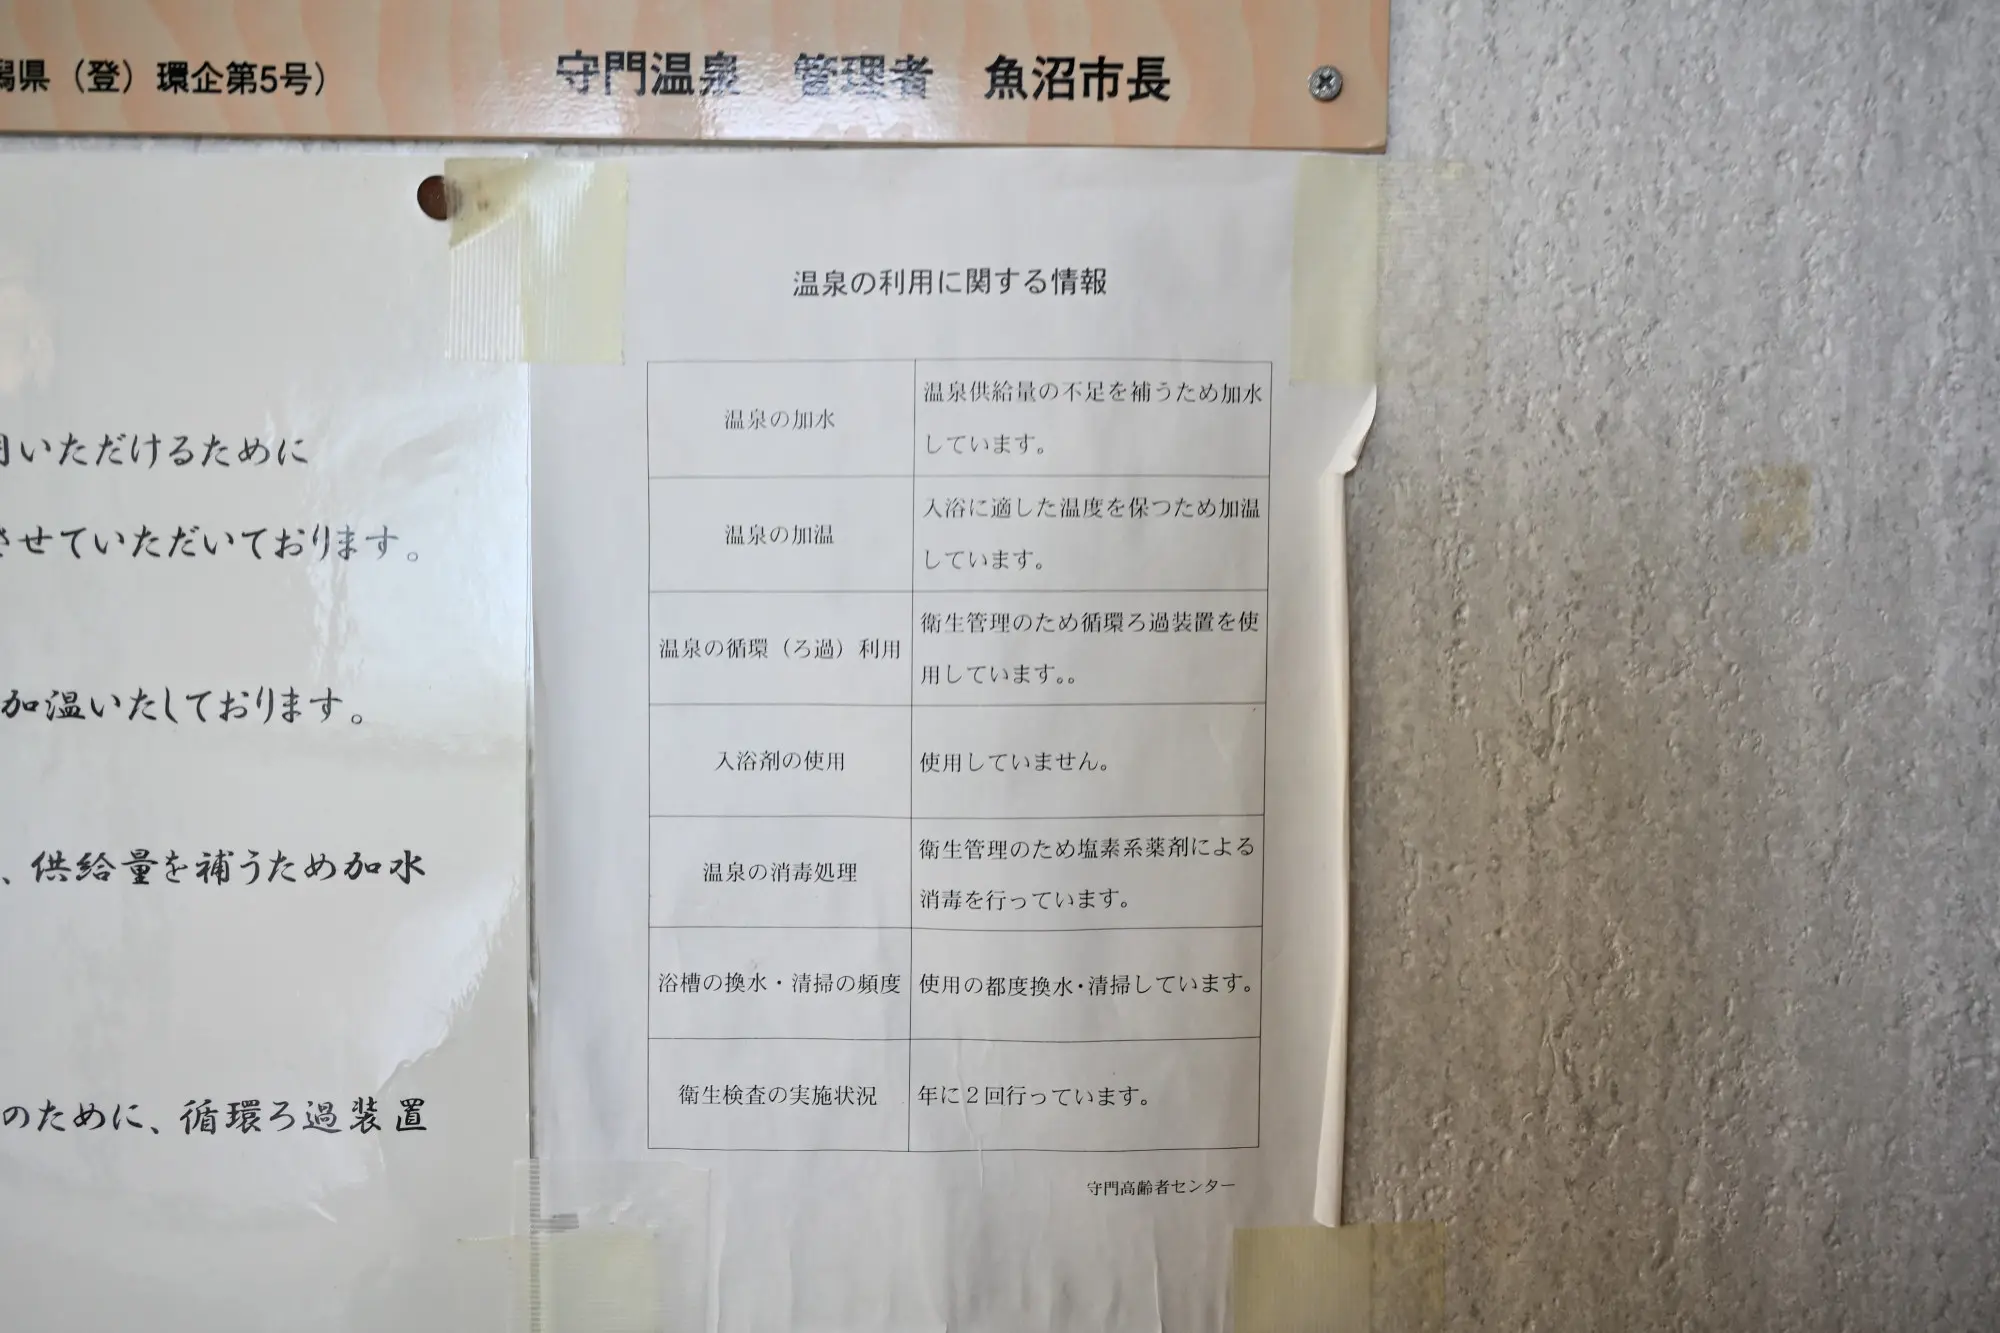 県（登）環企第5号）
守門温泉　管理者　魚沼市長
いただけるために
させていただいております。
加温いたしております。
、供給量を補うため加水
のために、循環ろ過装置
温泉の利用に関する情報
温泉の加水
温泉供給量の不足を補うため加水
しています。
温泉の加温
入浴に適した温度を保つため加温
しています。
温泉の循環（ろ過）利用
衛生管理のため循環ろ過装置を使
用しています。。
入浴剤の使用
使用していません。
温泉の消毒処理
衛生管理のため塩素系薬剤による
消毒を行っています。
浴槽の換水・清掃の頻度
使用の都度換水・清掃しています。
衛生検査の実施状況
年に２回行っています。
守門高齢者センター